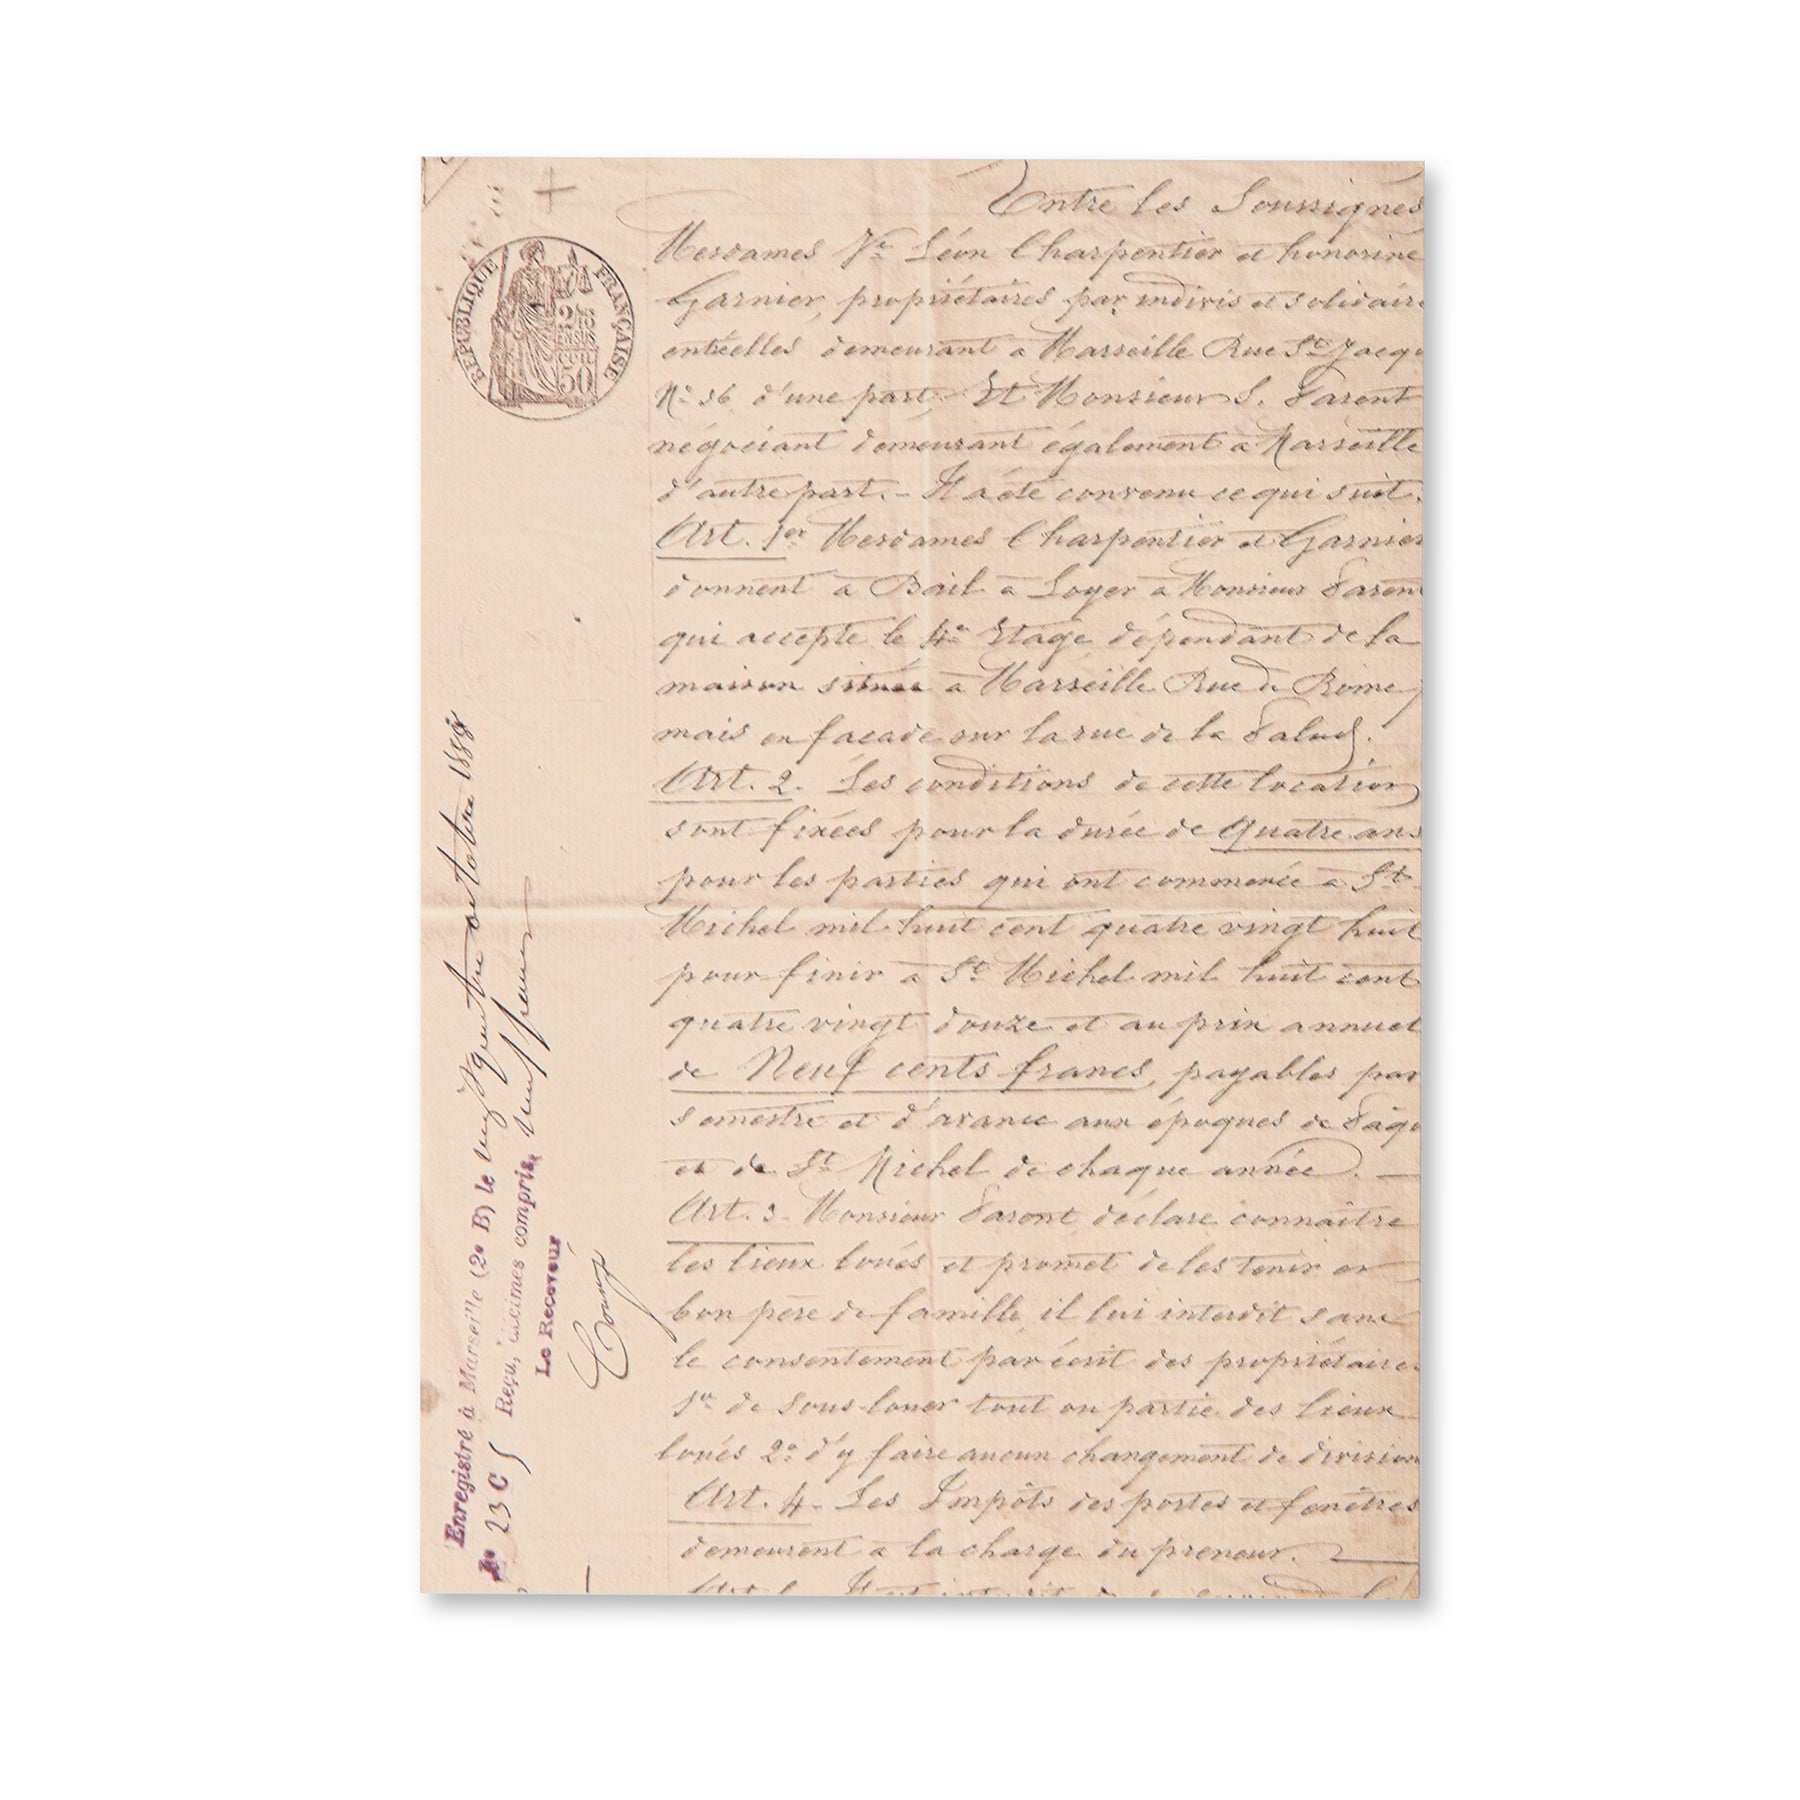 Entre les Soussignés
Mesdames Vve Léon Charpentier et honorine
Garnier, propriétaires par indivis et solidaire
entr'elles demeurant à Marseille Rue St Jacqu
No 56 d'une part, Et Monsieur S. Parent
négociant demeurant également à Marseille
d'autre part. - Il a été convenu ce qui suit.
Art. 1er Mesdames Charpentier et Garnier
donnent à Bail à Loyer à Monsieur Parent
qui accepte le 4e Etage dépendant de la
maison située à Marseille Rue de Rome
mais en façade sur la rue de la Palud.
Art. 2. Les conditions de cette location
sont fixées pour la durée de quatre ans
pour les parties qui ont commencé à St
Michel mil huit cent quatre vingt huit
pour finir à St Michel mil huit cent
quatre vingt douze et au prix annuel
de Neuf cents francs, payables par
semestre et d'avance aux époques de Pâqu
et de St Michel de chaque année. —
Art. 3 - Monsieur Parent déclare connaître
les lieux loués et promet de les tenir en
bon père de famille, il lui interdit sans
le consentement par écrit des propriétaires
1er de sous-louer tout ou partie des lieux
loués 2o d'y faire aucun changement de division
Art. 4. Les Impôts des portes et fenêtres
demeurent à la charge du preneur. —
RÉPUBLIQUE FRANÇAISE
50
Enregistré à Marseille (2e B) le vingt quatre octobre 1888
23 C Reçu, décimes compris, neuf francs
Le Receveur